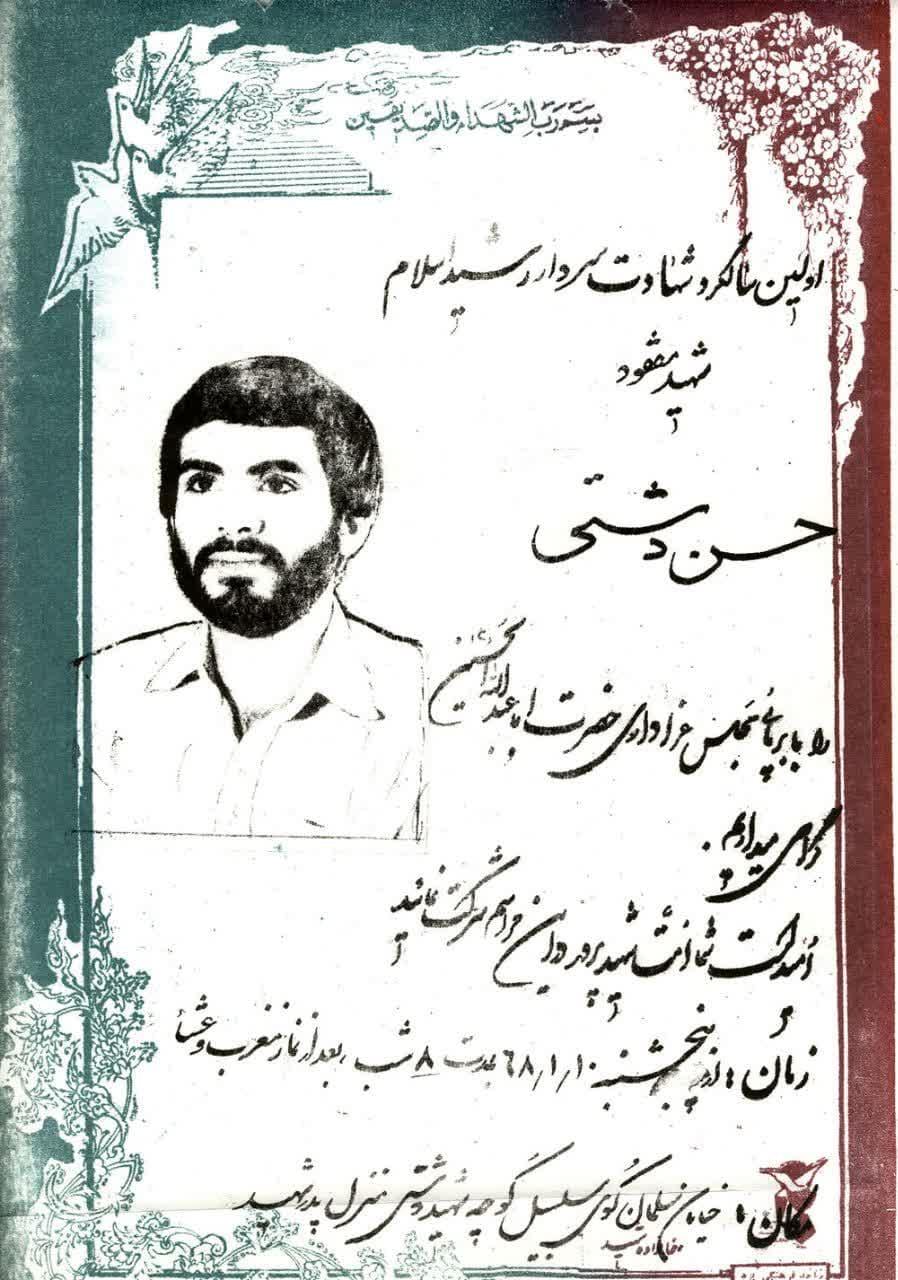 بسم رب الشهداء والصدیقین
اولین سالگرد شهادت سردار رشید اسلام
شهید مفقود
حسن دشتی
را با برپائی مجلس عزاداری حضرت اباعبدالله الحسین
گرامی میداریم.
امید است شما امت شهیدپرور در این مراسم شرکت نمائید
زمان: از پنجشنبه ۶۸/۱/۱۰ بمدت ۸ شب، بعد از نماز مغرب و عشاء
مکان: خیابان سلمان کوی سلسبیل کوچه شهید دشتی منزل پدر شهید
خانواده شهید